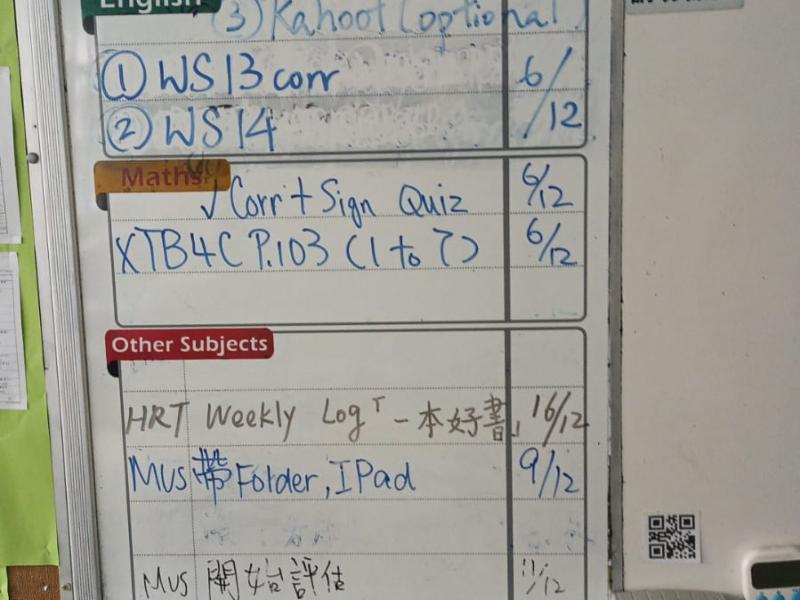 English
(3) Kahoot (optional)
① WS 13 corr 6/12
② WS 14
Maths
✓ Corr + Sign Quiz 6/12
X TB4C P.103 (1 to 7) 6/12
Other Subjects
HRT Weekly Log「一本好書」 16/12
Mus 帶 Folder, IPad 9/12
Mus 開始評估 11/12